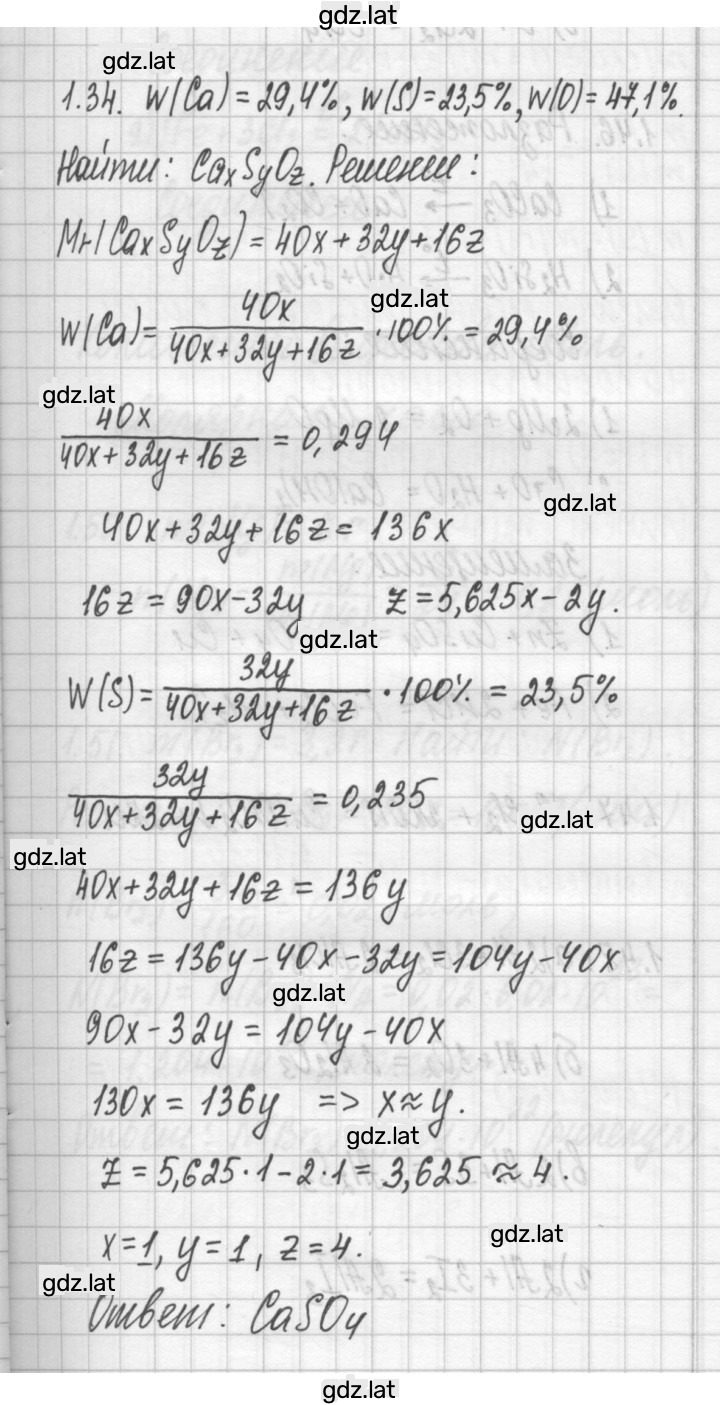 gdz.lat
gdz.lat
1.34. W(Ca) = 29,4%, W(S) = 23,5%, W(O) = 47,1%.
Найти: CaxSyOz. Решение:
Mr(CaxSyOz) = 40x + 32y + 16z
gdz.lat
W(Ca) = 40x / (40x + 32y + 16z) · 100% = 29,4%
gdz.lat
40x / (40x + 32y + 16z) = 0,294
gdz.lat
40x + 32y + 16z = 136x
16z = 90x - 32y z = 5,625x - 2y.
gdz.lat
W(S) = 32y / (40x + 32y + 16z) · 100% = 23,5%
32y / (40x + 32y + 16z) = 0,235
gdz.lat
gdz.lat
40x + 32y + 16z = 136y
16z = 136y - 40x - 32y = 104y - 40x
gdz.lat
90x - 32y = 104y - 40x
130x = 136y => x ≈ y.
gdz.lat
z = 5,625·1 - 2·1 = 3,625 ≈ 4.
gdz.lat
x = 1, y = 1, z = 4.
gdz.lat
Ответ: CaSO4
gdz.lat